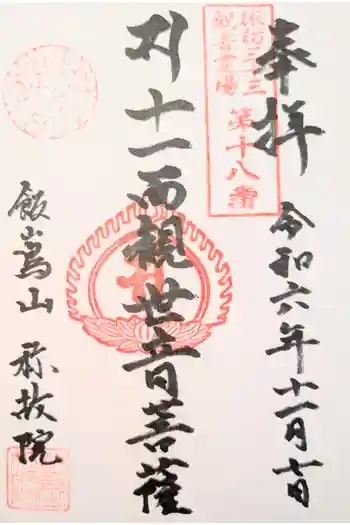 奉拝
令和六年十一月七日
諏訪三十三
観音霊場
第十八番
十一面観世音菩薩
飯嶌山 称故院